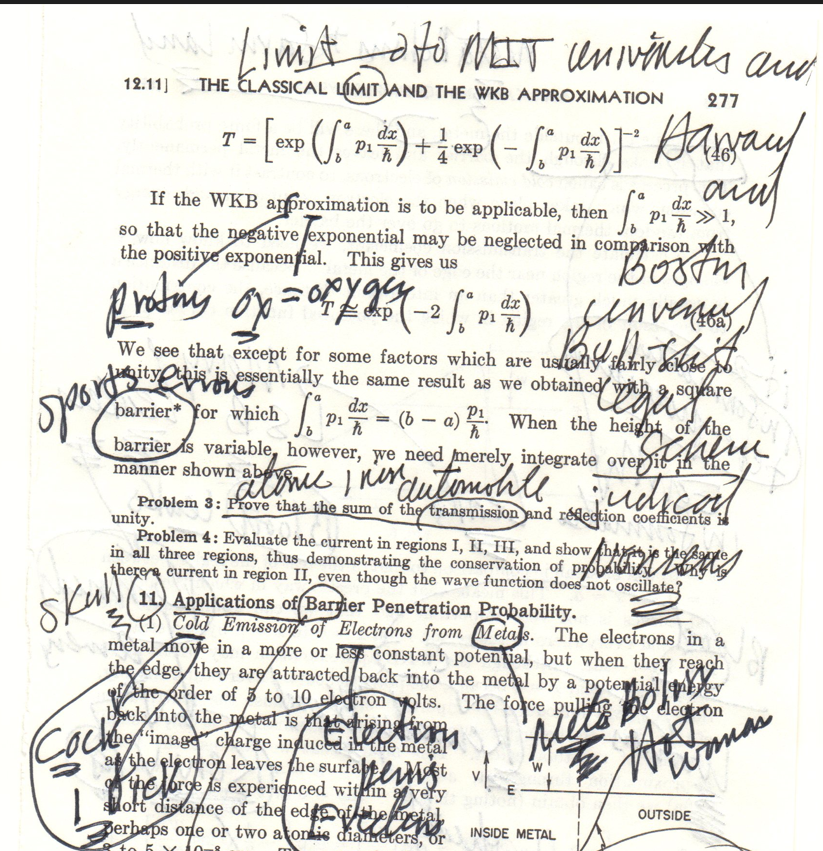 Limit → to MIT univesities and
12.11] THE CLASSICAL LIMIT AND THE WKB APPROXIMATION 277
T = [exp (∫_b^a p₁ dx/ħ) + 1/4 exp (− ∫_b^a p₁ dx/ħ)]⁻² (46)
and
If the WKB approximation is to be applicable, then ∫_b^a p₁ dx/ħ ≫ 1,
so that the negative exponential may be neglected in comparison with
the positive exponential. This gives us
Boston
protius ox = oxygen
T ≅ exp (−2 ∫_b^a p₁ dx/ħ) (46a)
Bull-shit
We see that except for some factors which are usually fairly close to
unity, this is essentially the same result as we obtained with a square
sports errors
legal
barrier* for which ∫_b^a p₁ dx/ħ = (b − a) p₁/ħ. When the height of the
barrier is variable, however, we need merely integrate over it in the
manner shown above.
Scheme
atomic automobile
Problem 3: Prove that the sum of the transmission and reflection coefficients is
unity.
Problem 4: Evaluate the current in regions I, II, III, and show that it is the same
in all three regions, thus demonstrating the conservation of probability. Why is
there a current in region II, even though the wave function does not oscillate?
skull
11. Applications of Barrier Penetration Probability.
(1) Cold Emission of Electrons from Metals. The electrons in a
metal move in a more or less constant potential, but when they reach
the edge, they are attracted back into the metal by a potential energy
of the order of 5 to 10 electron volts. The force pulling the electron
back into the metal is that arising from
the "image" charge induced in the metal
as the electron leaves the surface. Most
of the force is experienced within a very
short distance of the edge of the metal,
perhaps one or two atomic diameters, or
Cock
Electron
Penis
Erections
Hot
woman
V
W
E
INSIDE METAL
OUTSIDE